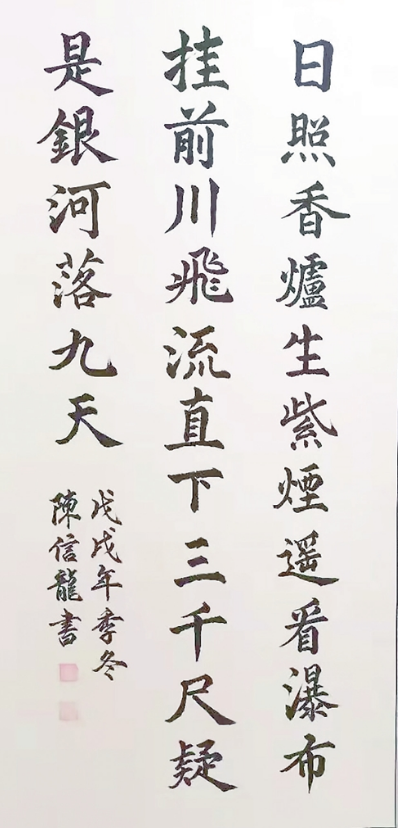 日照香爐生紫煙遥看瀑布
挂前川飛流直下三千尺疑
是銀河落九天
戊戌年季冬
陳信龍書